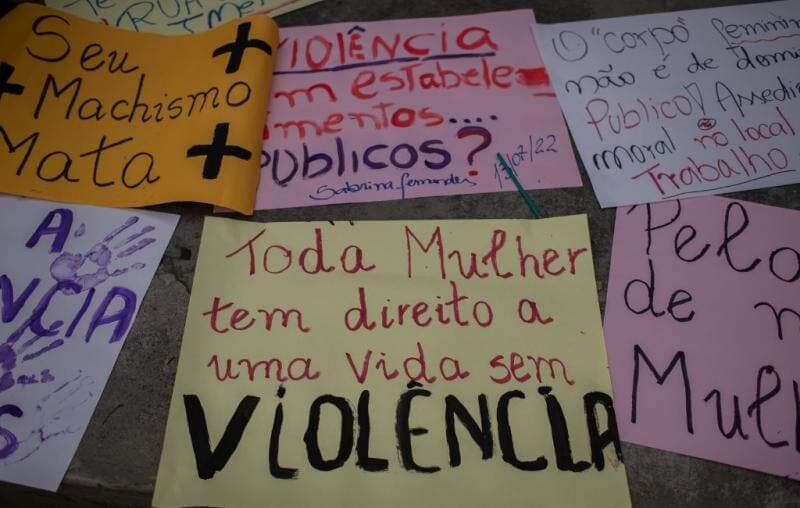 Seu
+ Machismo +
Mata +
VIOLÊNCIA
Em estabele
imentos....
PÚBLICOS?
Sabrina fernandes 13/07/22
O "corpo" feminin
não é de domi
Público! Assedi
moral no local
Trabalho
A
VCIA
S
Toda Mulher
tem direito a
uma vida sem
VIOLÊNCIA
Pelo
de
Mul